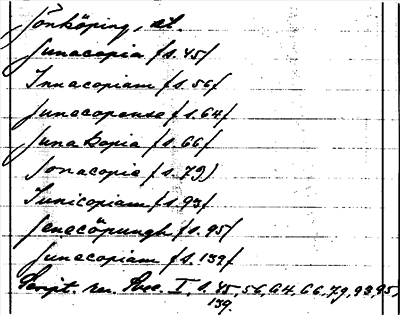 Jönköping, st.
Junacopia /s. 45/
Innacopiam /s. 56/
Junecopense /s. 64/
Junakopia /s. 66/
Jonacopie /s. 79)
Junicopiam /s. 93/
Jenecöpungh /s. 95/
Junecopiam /s. 139/
Script. rer. Svec. I, s. 45, 56, 64, 66, 79, 93, 95,
139.